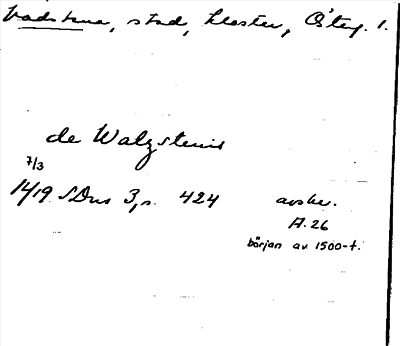 Vadstena, stad, kloster, Österg. 1.
de Walzstenis
7/3
1419 SDns 3, s. 424 avskr.
A. 26
början av 1500-t.